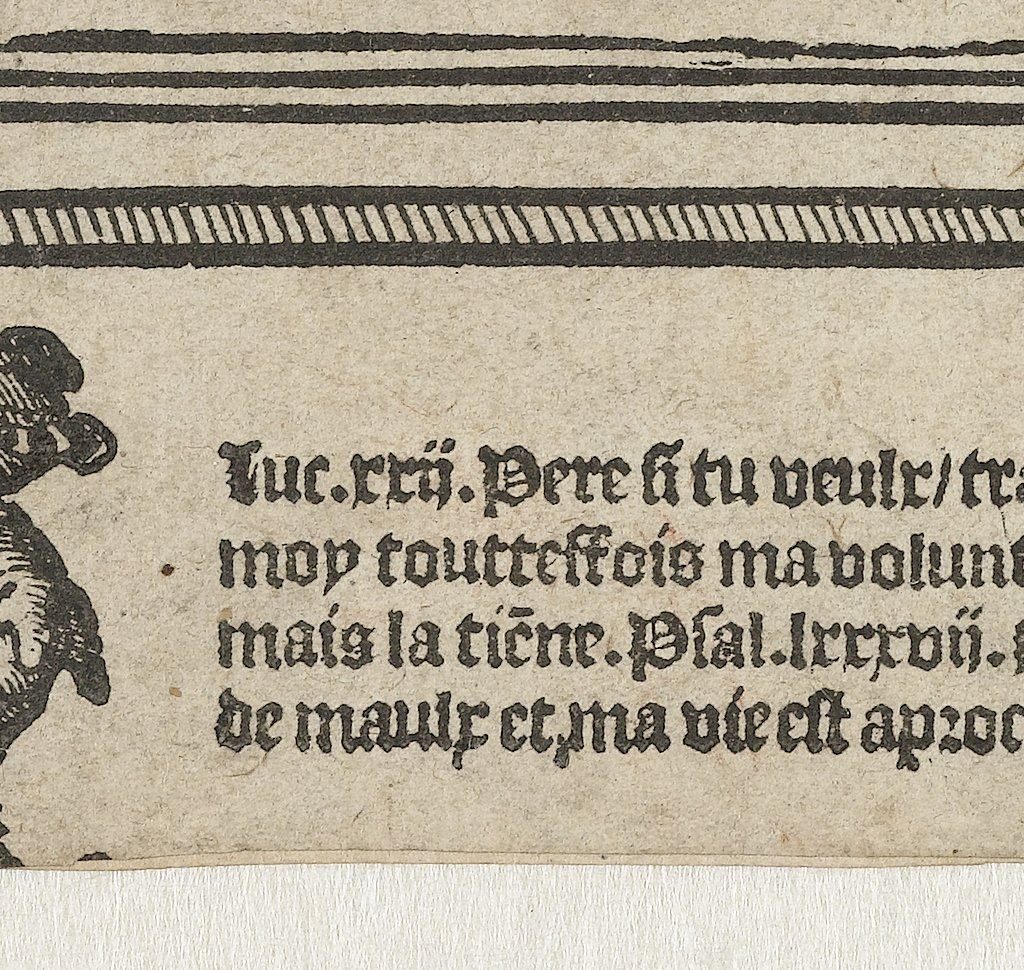 Luc.xxij. Pere si tu veulx/ tra
moy touttesfois ma volunt
mais la tiēne. Psal.lxxxvij.
de maulx et ma vie est aproc